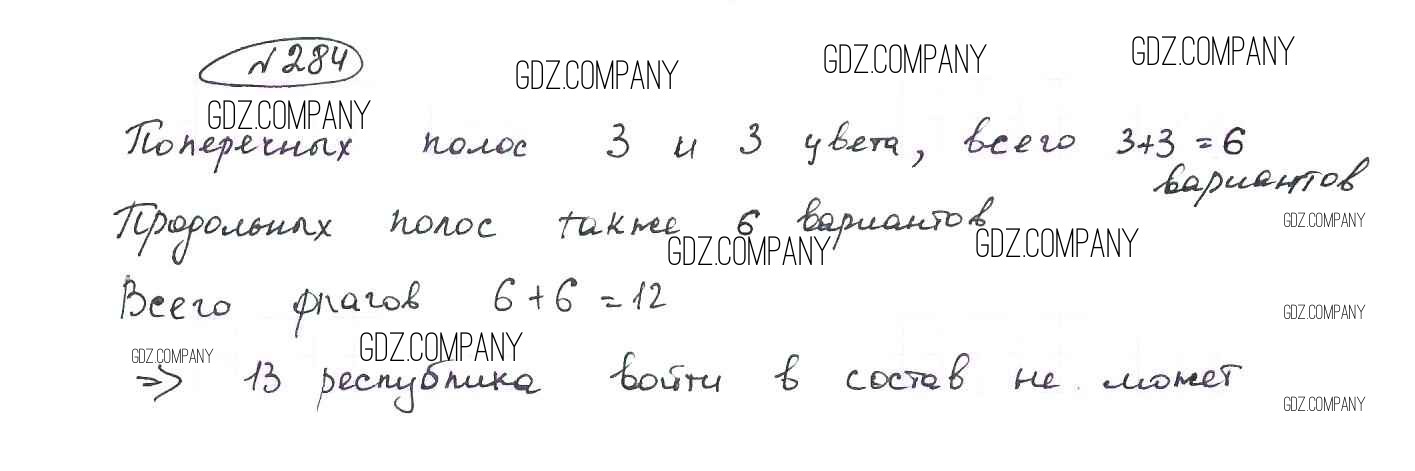 №284
GDZ.COMPANY GDZ.COMPANY GDZ.COMPANY
GDZ.COMPANY
Поперечных полос 3 и 3 цвета, всего 3+3=6
вариантов
Продольных полос также 6 вариантов
GDZ.COMPANY
GDZ.COMPANY GDZ.COMPANY
Всего флагов 6+6=12
GDZ.COMPANY
GDZ.COMPANY GDZ.COMPANY
=> 13 республика войти в состав не может
GDZ.COMPANY